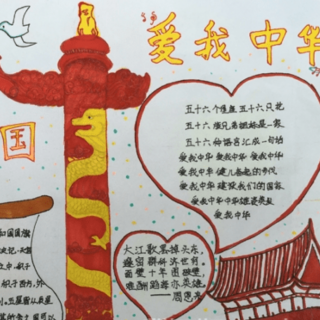 爱我中华
国
五十六个星座五十六只花
五十六族兄弟姐妹是一家
五十六种语言汇成一句话
爱我中华 爱我中华 爱我中华
爱我中华 健儿奋起的步伐
爱我中华 建设我们的国家
爱我中华 中华雄姿英发
爱我中华
大江歌罢掉头东，
邃密群科济世穷。
面壁十年图破壁，
难酬蹈海亦英雄。
——周恩来
和国国旗